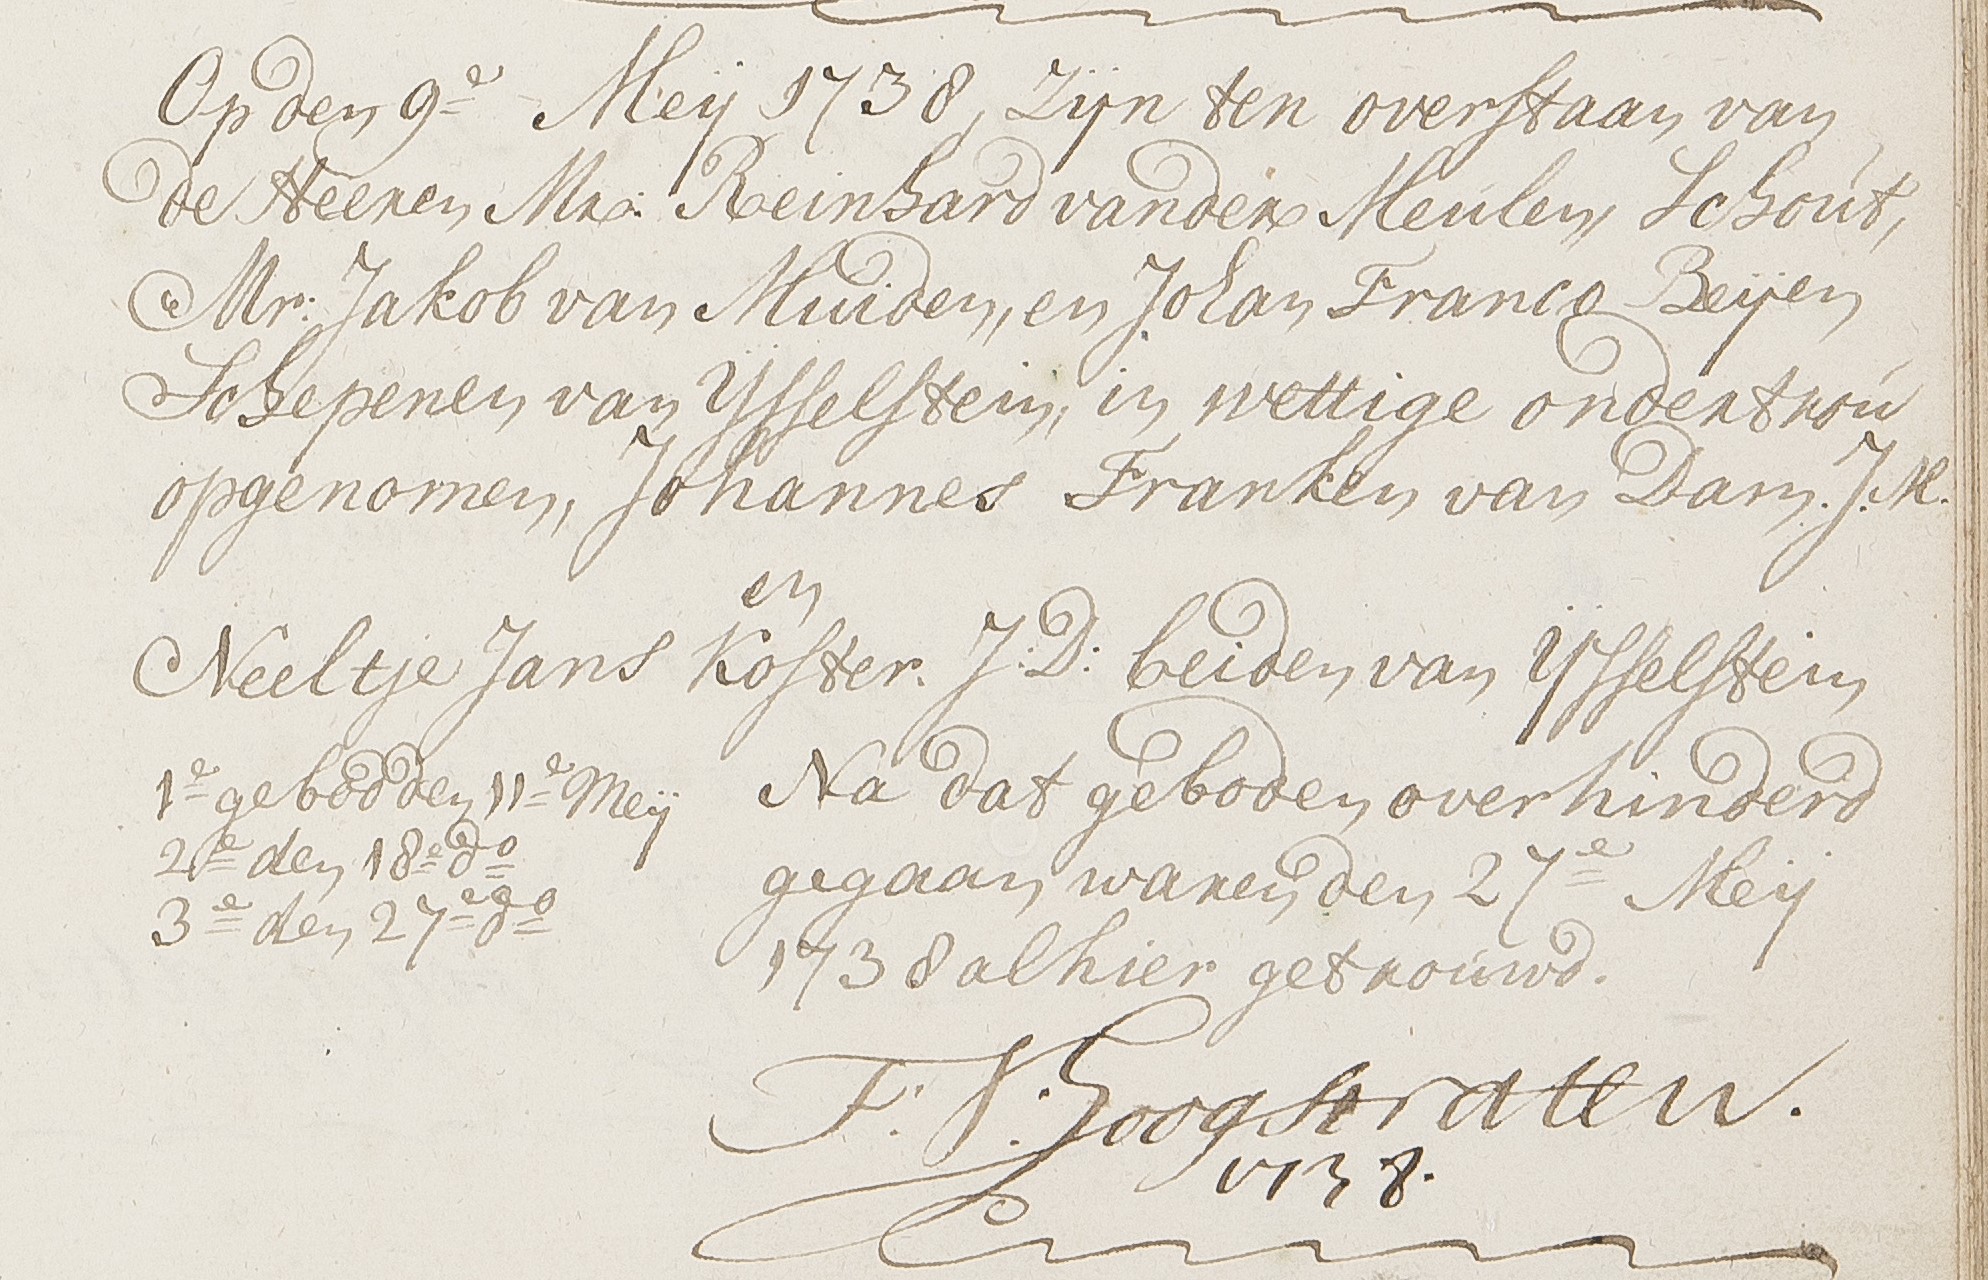 Op den 9e Meij 1738, Zijn ten overstaan van
de Heeren Mr: Reinhard vander Meulen, Schout,
Mr: Jakob van Muiden, en Johan Franco Beijen
Schepenen van IJsselstein, in wettige ondertrou
opgenomen, Johannes Franken van Dam. J.M.
en
Neeltje Jans Koster. J:D: beiden van IJsselstein
1e gebod den 11e Meij
2e den 18e do
3e den 27e do
Na dat geboden overhinderd
gegaan waren, den 27e Meij
1738 alhier getrouwd.
F. V. Hoogstraten.
1738.